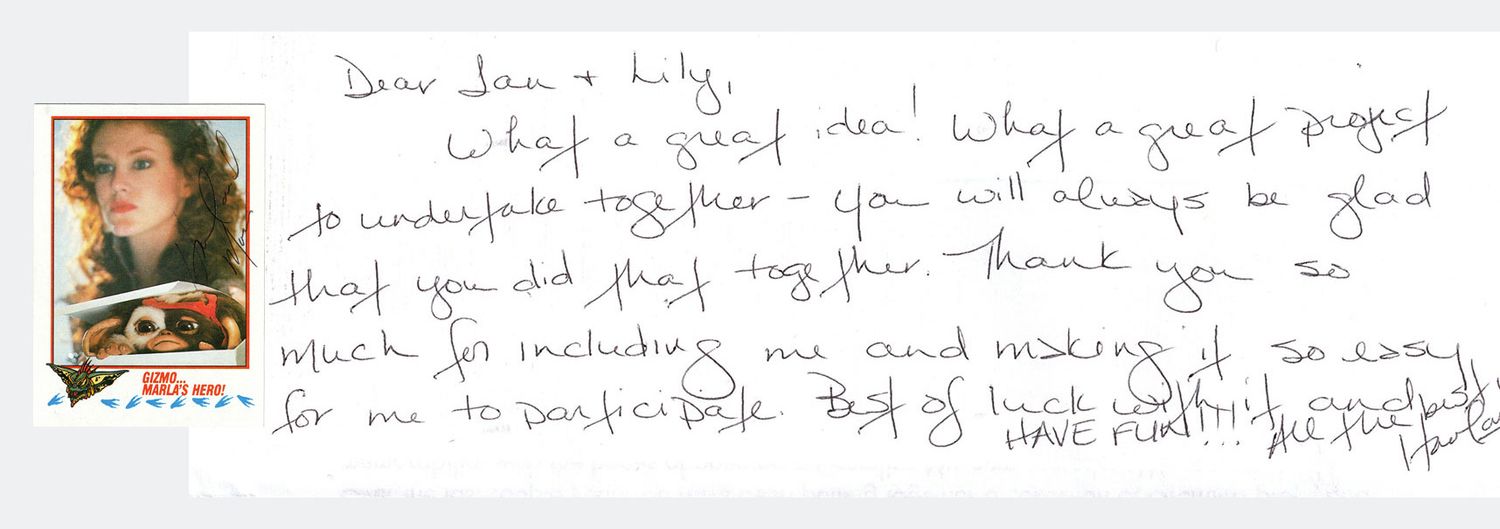 Dear Ian + Lily,
What a great idea! What a great project
to undertake together – you will always be glad
that you did that together. Thank you so
much for including me and making it so easy
for me to participate. Best of luck with it and
HAVE FUN!!!! All the best,
GIZMO...
MARLA'S HERO!